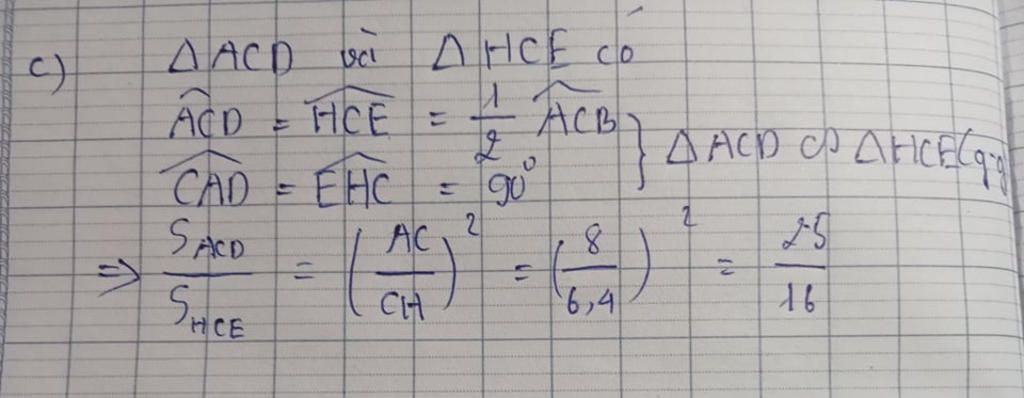 c) ΔACD và ΔHCE có
∠ACD = ∠HCE = 1/2 ∠ACB
∠CAD = ∠EHC = 90° } ΔACD ∽ ΔHCE (g.g
⇒ S_ACD / S_HCE = (AC / CH)² = (8 / 6,4)² = 25 / 16